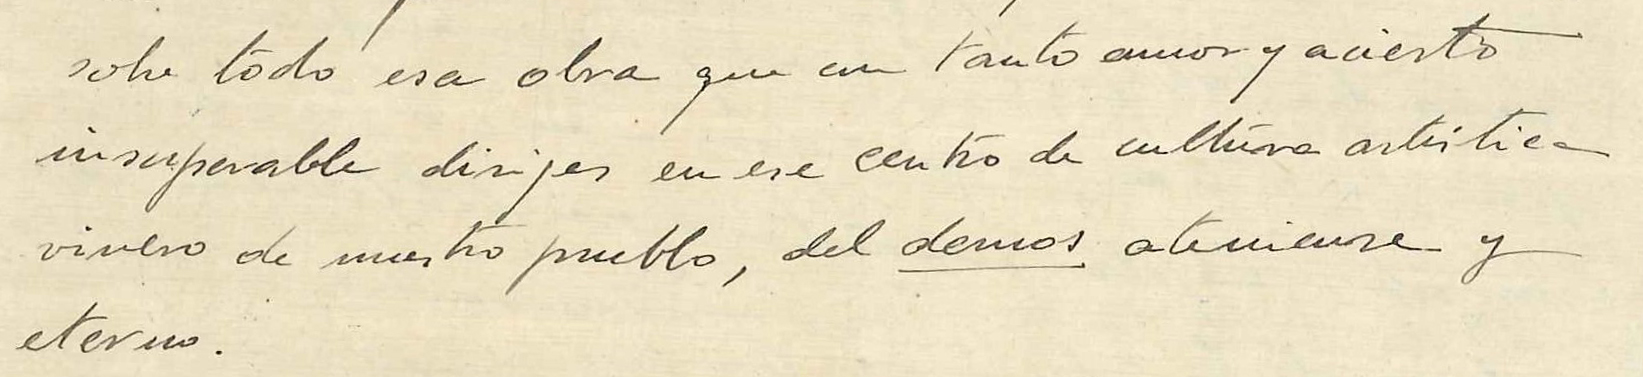 sobre todo esa obra que con tanto amor y acierto
insuperable dirijes en ese centro de cultura artística
vivero de nuestro pueblo, del demos ateniense y
eterno.